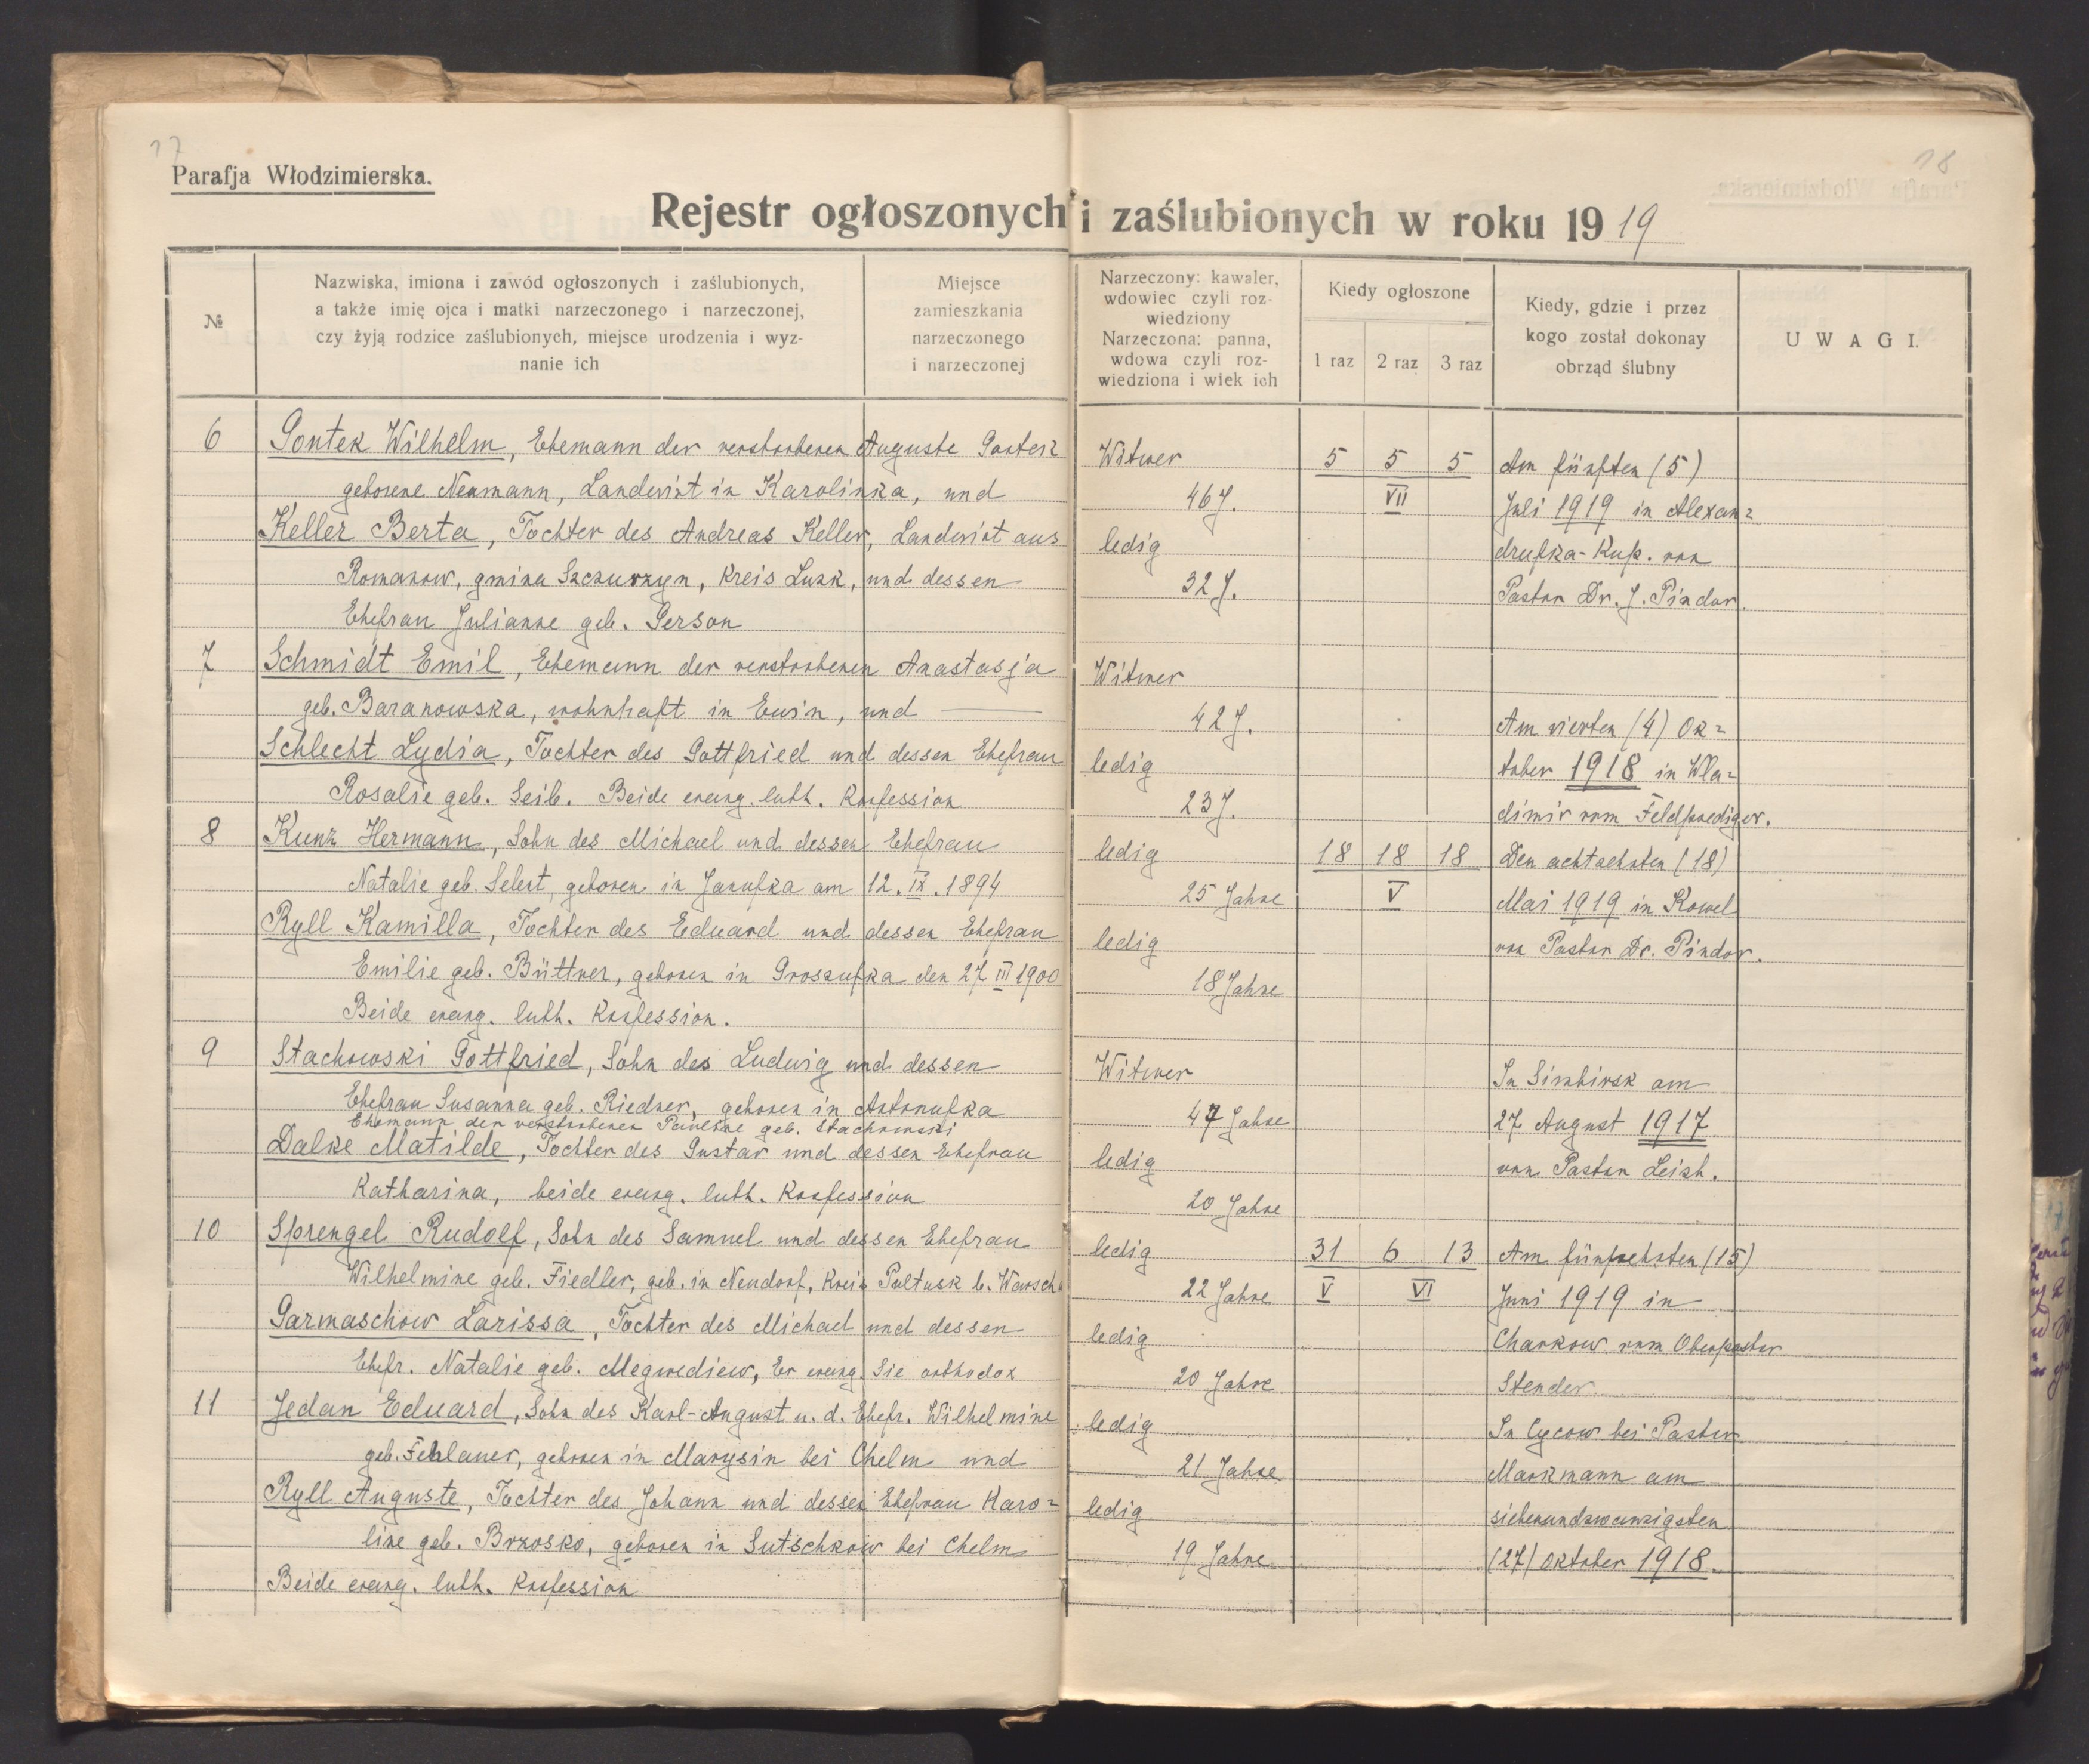 17
Parafja Włodzimierska.
18
Rejestr ogłoszonych i zaślubionych w roku 1919
№
Nazwiska, imiona i zawód ogłoszonych i zaślubionych,
a także imię ojca i matki narzeczonego i narzeczonej,
czy żyją rodzice zaślubionych, miejsce urodzenia i wyz-
nanie ich
Miejsce
zamieszkania
narzeczonego
i narzeczonej
Narzeczony: kawaler,
wdowiec czyli roz-
wiedziony
Narzeczona: panna,
wdowa czyli roz-
wiedziona i wiek ich
Kiedy ogłoszone
1 raz 2 raz 3 raz
Kiedy, gdzie i przez
kogo został dokonay
obrząd ślubny
UWAGI.
6 Gontek Wilhelm, Ehemann der verstorbenen Auguste Gontek
geborene Neumann, Landwirt in Karolinka, und
Keller Berta, Tochter des Andreas Keller, Landwirt aus
Romanow, gmina Szczurzyn, Kreis Luzk, und dessen
Ehefrau Julianne geb. Gerson
Witwer
46 J.
ledig
32 J.
5 5 5
VII
Am fünften (5)
Juli 1919 in Alexan=
drufka-Kup. von
Pastor Dr. J. Pindor.
7 Schmidt Emil, Ehemann der verstorbenen Anastasja
geb. Baranowska, wohnhaft in Ewin, und
Schlecht Lydia, Tochter des Gottfried und dessen Ehefrau
Rosalie geb. Seib. Beide evang. luth. Konfession
Witwer
42 J.
ledig
23 J.
Am vierten (4) Ok=
tober 1918 in Wla=
dimir vom Feldprediger.
8 Kunz Hermann, Sohn des Michael und dessen Ehefrau
Natalie geb. Selent, geboren in Janufka am 12. IX. 1894
Ryll Kamilla, Tochter des Eduard und dessen Ehefrau
Emilie geb. Büttner, geboren in Groszufka den 27 III 1900
Beide evang. luth. Konfession.
ledig
25 Jahre
ledig
18 Jahre
18 18 18
V
Den achtzehnten (18)
Mai 1919 in Kowel
von Pastor Dr. Pindor.
9 Stachowski Gottfried, Sohn des Ludwig und dessen
Ehefrau Susanna geb. Riedner, geboren in Antonufka
Ehemann der verstorbenen Pauline geb. Stachowski
Dalke Matilde, Tochter des Gustav und dessen Ehefrau
Katharina, beide evang. luth. Konfession
Witwer
47 Jahre
ledig
20 Jahre
In Simbirsk am
27 August 1917
von Pastor Leish.
10 Sprengel Rudolf, Sohn des Samuel und dessen Ehefrau
Wilhelmine geb. Fiedler, geb. in Neudorf, Kreis Pultusk b. Warsch.
Garmaschow Larissa, Tochter des Michael und dessen
Ehefr. Natalie geb. Megwediew, Er evang. Sie orthodox
ledig
22 Jahre
ledig
20 Jahre
31 6 13
V VI
Am fünfzehnten (15)
Juni 1919 in
Charkow vom Oberpastor
Stender
11 Jedan Eduard, Sohn des Karl-August u. d. Ehefr. Wilhelmine
geb. Fehlauer, geboren in Marysin bei Chelm und
Ryll Auguste, Tochter des Johann und dessen Ehefrau Karo=
line geb. Brzosko, geboren in Sutschkow bei Chelm
Beide evang. luth. Konfession
ledig
21 Jahre
ledig
19 Jahre
In Cycow bei Pastor
Markmann am
siebenundzwanzigsten
(27) Oktober 1918.